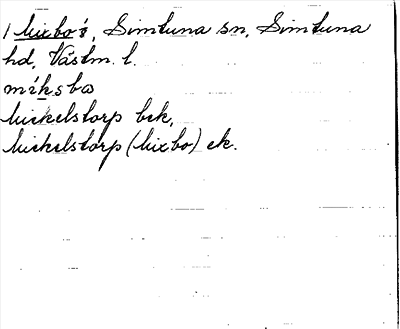 1 Mixbo's, Simtuna sn, Simtuna
hd, Västm. l.
míksbo
Mickelstorp bek.
Mickelstorp (Mixbo) ek.